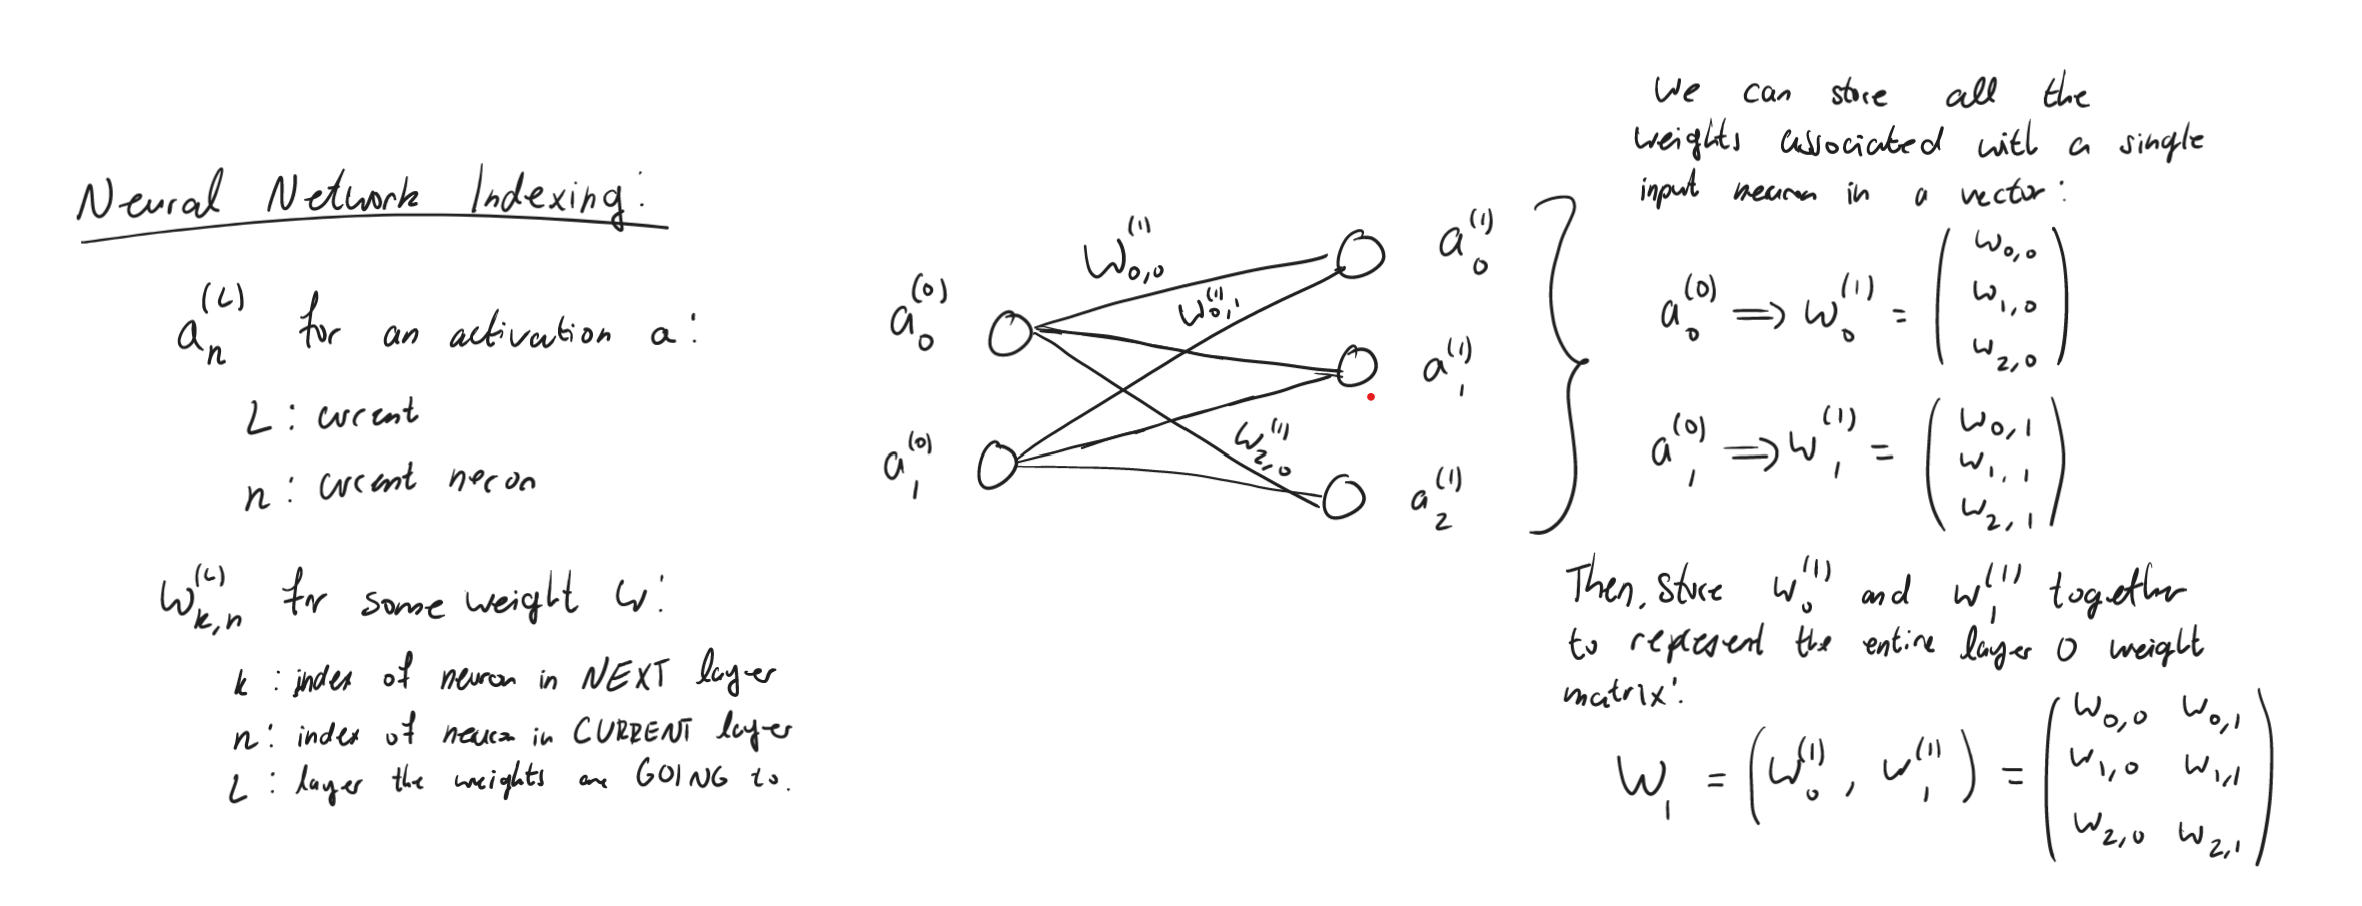 Neural Network Indexing:
a_n^(L) for an activation a:
L: current
n: current neron
w_{k,n}^(L) for some weight w:
k: index of neuron in NEXT layer
n: index of neuron in CURRENT layer
L: layer the weights are GOING to.
a_0^(0)
a_1^(0)
w_{0,0}^(1)
w_{0,1}^(1)
w_{2,0}^(1)
a_0^(1)
a_1^(1)
a_2^(1)
We can store all the
weights associated with a single
input neuron in a vector:
a_0^(0) ⟹ w_0^(1) = ( w_{0,0}
w_{1,0}
w_{2,0} )
a_1^(0) ⟹ w_1^(1) = ( w_{0,1}
w_{1,1}
w_{2,1} )
Then, store w_0^(1) and w_1^(1) together
to represent the entire layer 0 weight
matrix:
W_1 = ( w_0^(1), w_1^(1) ) = ( w_{0,0} w_{0,1}
w_{1,0} w_{1,1}
w_{2,0} w_{2,1} )